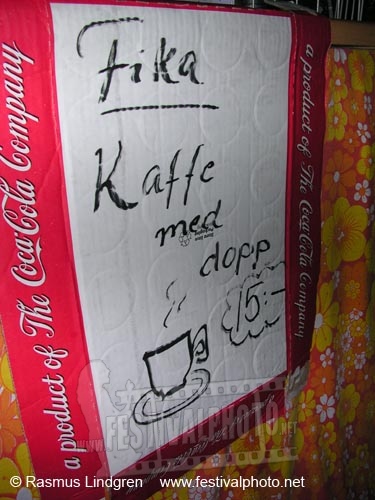 a product of The Coca-Cola Company
Fika
Kaffe
med
dopp
15:-
a product of The Coca-Cola Company
WWW.FESTIVALPHOTO.NET
© Rasmus Lindgren www.festivalphoto.net